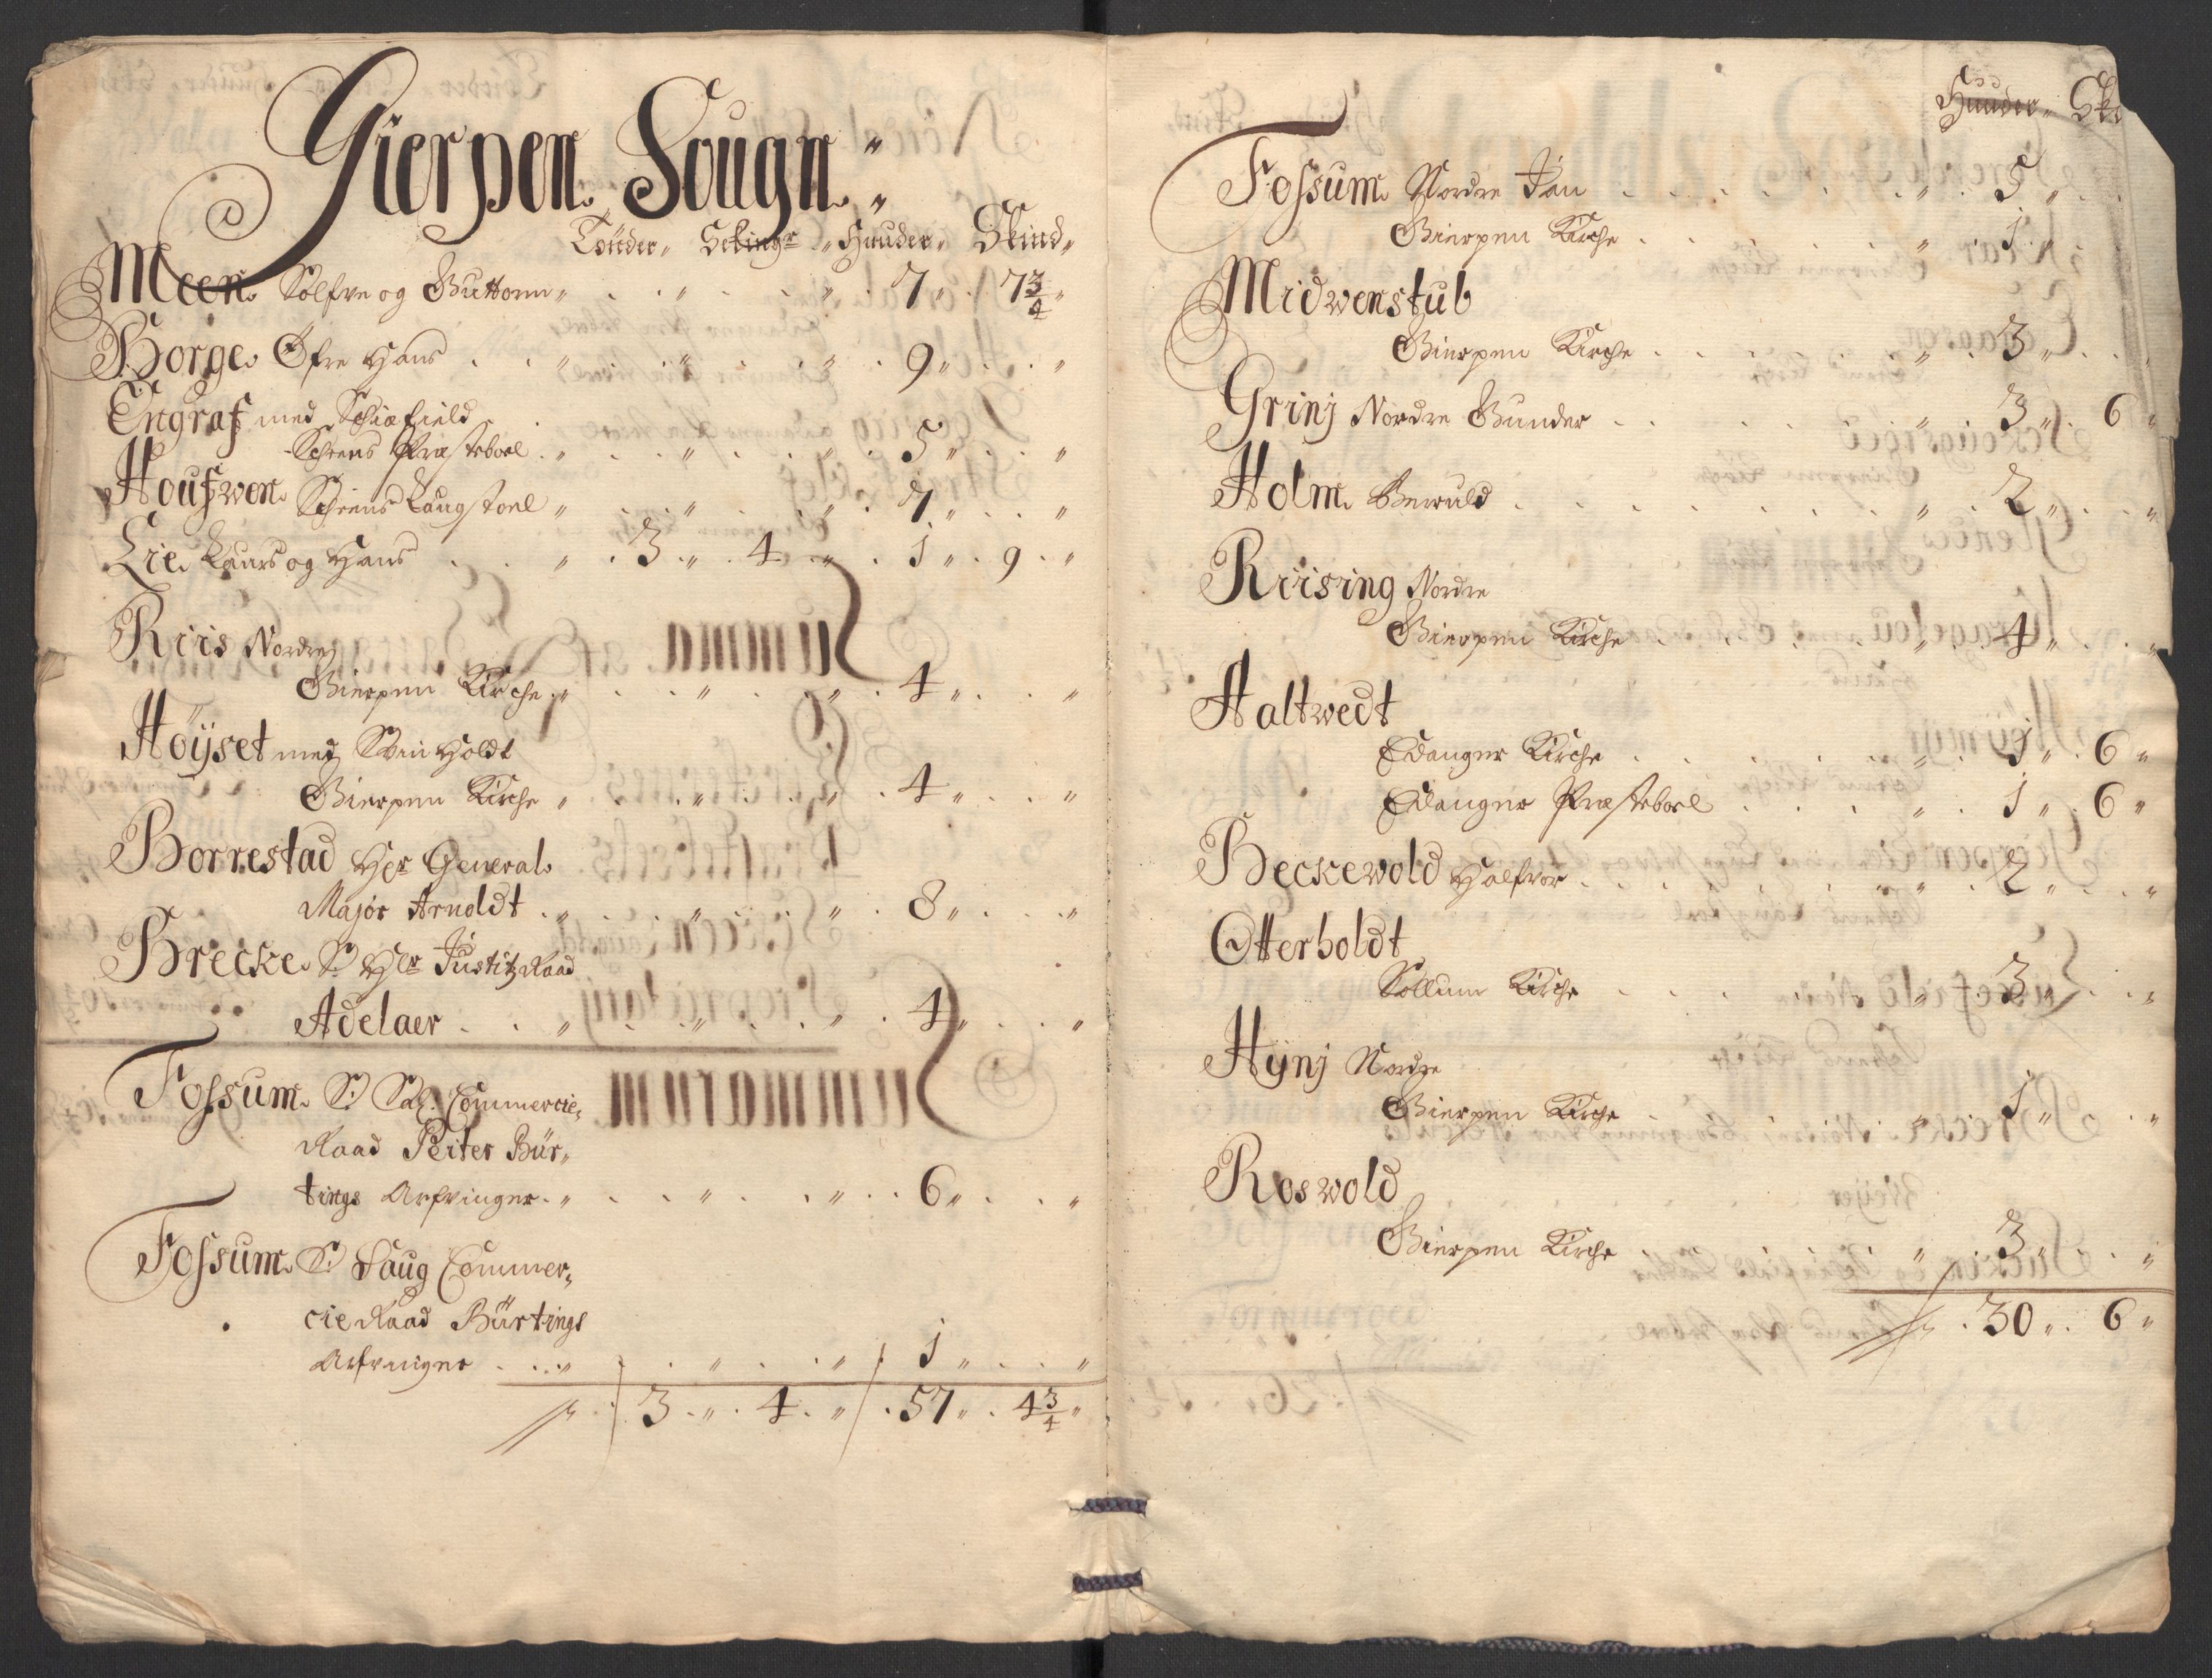 Gierpen Sougn
Tönder Setingr Huuder Skind
Meen Solfve og Guttorm 7 7 3/4
Borge Øfre Hans 9
Engraf med Schiæfield
Schiens Præsteboel 5
Houfwen Schiens Laugstoel 7
Lie Laurs og Hans 3 4 1 9
Riis Nordre
Gierpen Kirche 4
Höijset med Svinholdt
Gierpen Kirche 4
Borrestad Hr General
Major Arnoldt 8
Brecke S. Hr Justitz Raad
Adelaer 4
Fossum S. Sal. Commercie
Raad Peiter Bör
tings Arfvinger 6
Fossum S. Saug Commer
cie Raad Börtings
Arfvinger 1
3 4 57 4 3/4
Huuder Ski
Fossum Nordre Jan 5
Gierpen Kirche 1
Midwenstub
Gierpen Kirche 3
Grinj Nordre Gunder 3 6
Holm Geruld 2
Riising Nordre
Gierpen Kirche 4
Haltwedt
Edanger Kirche 1 6
Edanger Præsteboel 1 6
Beckewold Halfvor 2
Otterholdt
Sollum Kirche 3
Hynj Nordre
Gierpen Kirche 1
Roswold
Gierpen Kirche 3
30 6